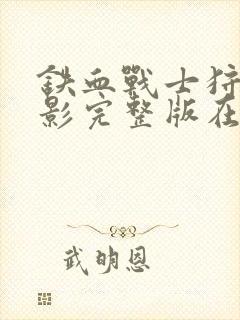 鉄血戰士狩
影完整版在
武明恩